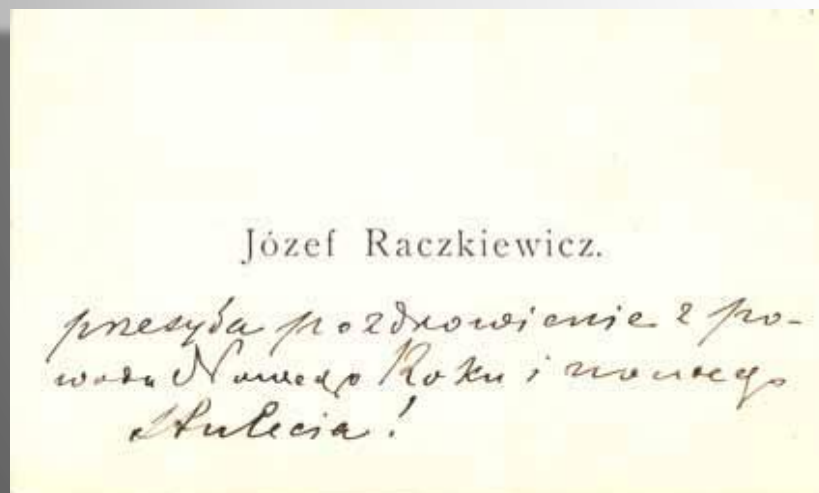 Józef Raczkiewicz.
przesyła pozdrowienie z po-
wodu Nowego Roku i nowego
Stulecia!